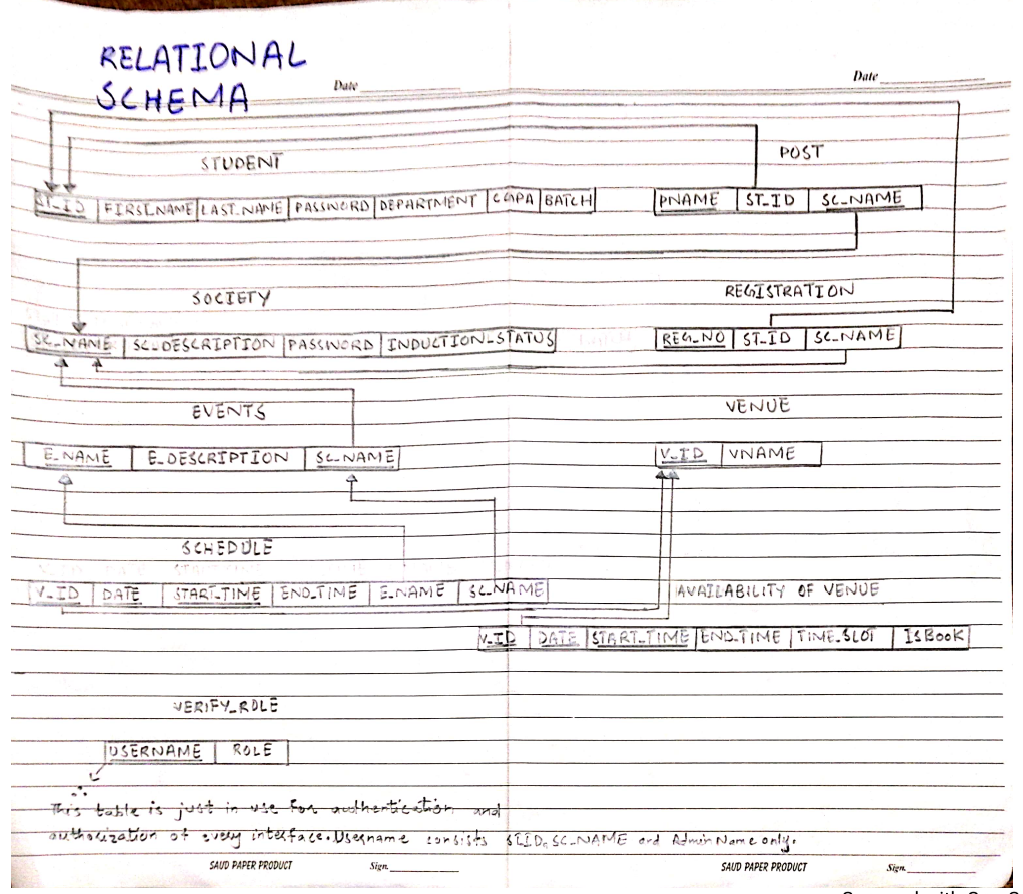 RELATIONAL
SCHEMA
Date
Date
STUDENT
POST
ST_ID FIRST_NAME LAST_NAME PASSWORD DEPARTMENT CGPA BATCH
PNAME ST_ID SC_NAME
SOCIETY
REGISTRATION
SC_NAME SC_DESCRIPTION PASSWORD INDUCTION_STATUS
REG_NO ST_ID SC_NAME
EVENTS
VENUE
E_NAME E_DESCRIPTION SC_NAME
V_ID VNAME
SCHEDULE
V_ID DATE START_TIME END_TIME E_NAME SC_NAME
AVAILABILITY OF VENUE
V_ID DATE START_TIME END_TIME TIME_SLOT ISBOOK
VERIFY_ROLE
USERNAME ROLE
This table is just in use for authentication and
authorization of every interface. Username consists STID, SC_NAME and Admin Name only.
SAUD PAPER PRODUCT Sign.
SAUD PAPER PRODUCT Sign.